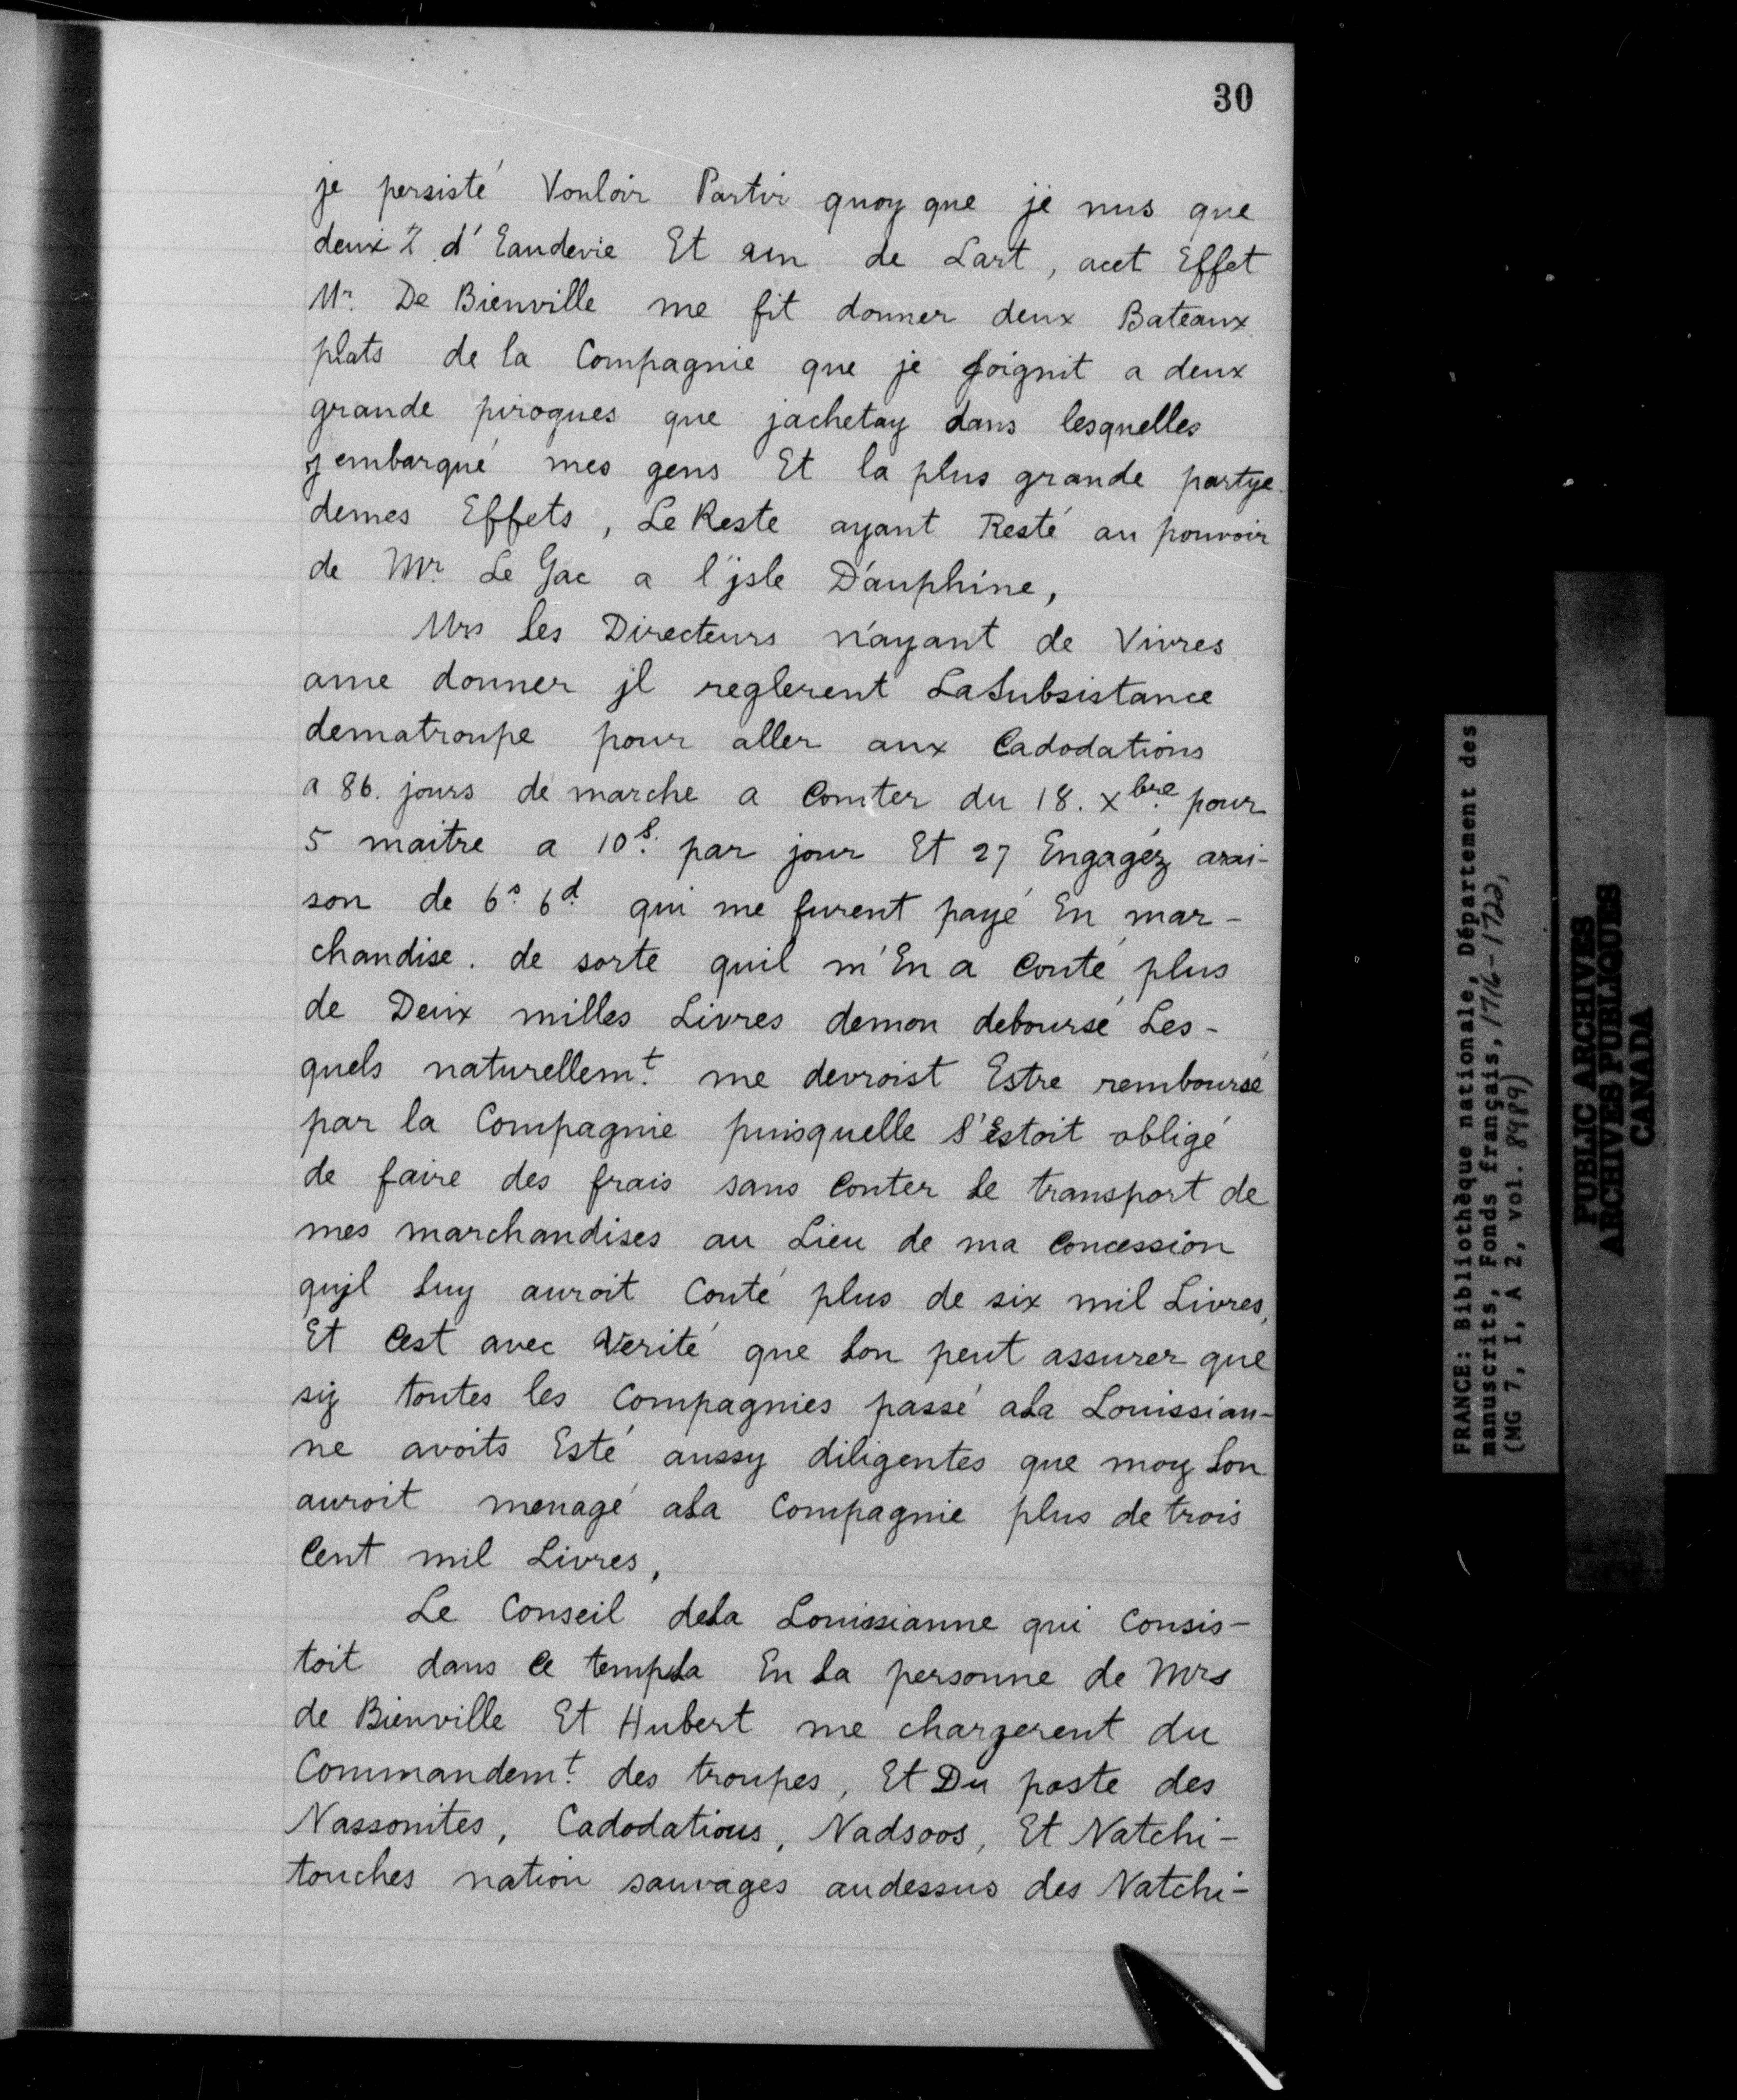 30
je persisté Vouloir Partir quoy que je nus que
deux d'Eaudevie Et un de Lart, acet Effet
Mr. De Bienville me fit donner deux Bateaux
plats de la Compagnie que je Joignit a deux
grande pirogues que jachetay dans lesquelles
jembarqué mes gens Et la plus grande partye
demes Effets, Le Reste ayant Resté au pouvoir
de Mr. Le Gac a l'jsle D'auphine,
Mrs les Directeurs n'ayant de Vivres
ame donner jl reglerent LaSubsistance
dematroupe pour aller aux Cadodatious
a 86. jours de marche a Comter du 18. Xbre pour
5 maitre a 10s. par jour Et 27 Engagéz arai-
son de 6s. 6d. qui me furent payé En mar-
chandise. de sorte quil m'En a Couté plus
de Deux milles Livres demon deboursé Les-
quels naturellemt. me devroist Estre remboursé
par la Compagnie puisquelle S'Estoit obligé
de faire des frais sans Conter Le transport de
mes marchandises au Lieu de ma Concession
qujl Luy auroit Couté plus de six mil Livres,
Et Cest avec Verité que Lon peut assurer que
sy toutes les Compagnies passé aLa Louissian-
ne avoits Esté aussy diligentes que moy Lon
auroit menagé aLa Compagnie plus de trois
Cent mil Livres,
Le Conseil deLa Louissianne qui Consis-
toit dans Ce tempsLa En La personne de Mrs
de Bienville Et Hubert me chargerent du
Commandemt. des troupes, Et Du poste des
Nassonites, Cadodatious, Nadsoos, Et Natchi-
touches nation sauvages audessus des Natchi-
FRANCE: Bibliothèque nationale, Département des
manuscrits, Fonds français, 1716-1722,
(MG 7, I, A 2, vol. 8989)
PUBLIC ARCHIVES
ARCHIVES PUBLIQUES
CANADA